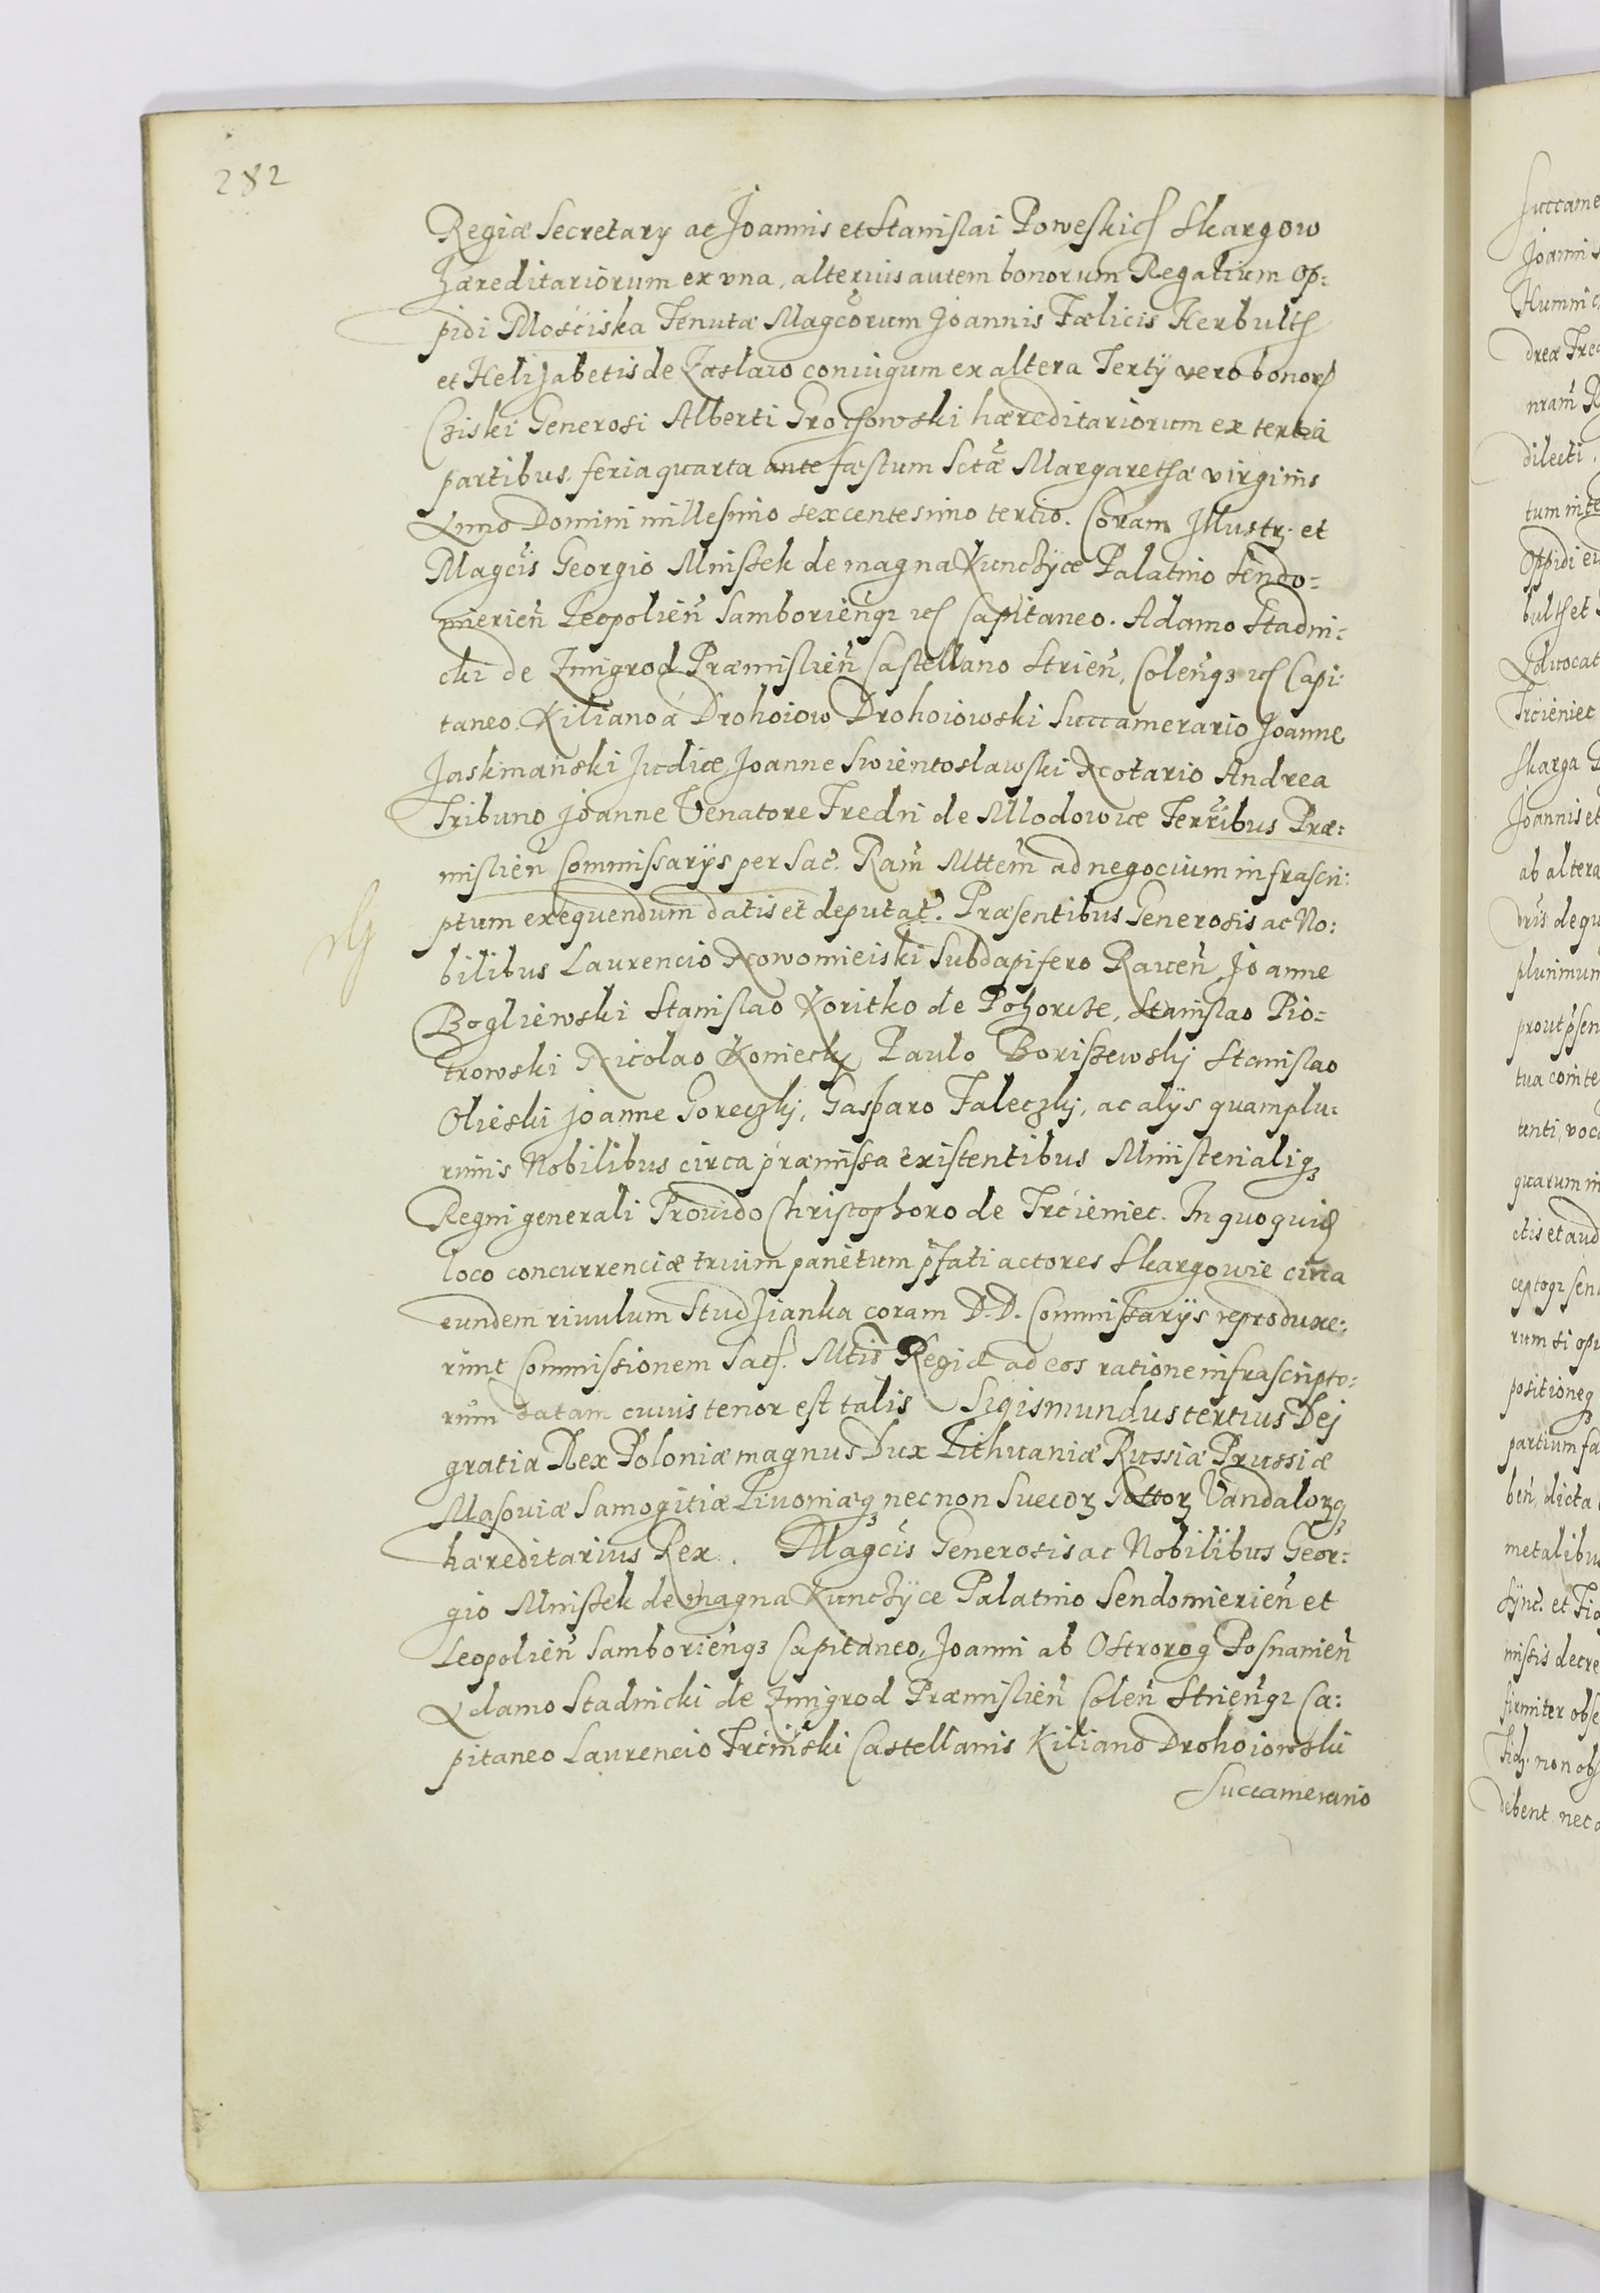 282
Regiæ Secretary ac Joannis et Stanislai Poweskich Skargow
Hæreditariorum ex una, alterius autem bonorum Regalium Op:
pidi Mościska Tenutæ Magcorum Joannis Fælicis Herbulth
et Helizabetis de Zaslaw coniugum ex altera Terty vero bonor
Cziski Generosi Alberti Grochowski hæreditariorum ex tertia
partibus. feria quarta ante fæstum Sctæ Margarethæ virginis
Anno Domini millesimo sexcentesimo tertio. Coram Illustr. et
Magcis Georgio Mnissek de magna Kunczyce Palatino Sendo=
mirien Leopolien Samborienq etc Capitaneo. Adamo Stadni:
cki de Zmigrod Præmislien Castellano Strien, Colenq etc Capi:
taneo. Kiliano á Drohoiow Drohoiowski Succamerario Joanne
Jaskmański Judice, Joanne Swientoslawski Notario Andrea
Tribuno Joanne Venatore Fredri de Mlodowice Terribus Præ:
mislien Commissarijs per Sac. Ram Mttem ad negocium infrascri:
ptum exequendum datis et deputat. Præsentibus Generosis ac No:
bilibus Laurencio Nowomieiski Subdapifero Raven Joanne
Bogliewski Stanislao Koritko de Pohorcze, Stanislao Pio:
trowski Nicolao Koniecky Paulo Boriszewskj Stanislao
Olieski Joanne Goreczkj, Gasparo Faleczkj, ac alijs quamplu:
rimis Nobilibus circa præmissa existentibus Ministerialiq
Regni generali Prouido Christophoro de Trcieniec. In quoquid
loco concurrenciæ trium panetum pfati actores Skargowie circa
eundem riuulum Studzianka coram D.D. Commissarijs reproduxe:
runt Commissionem Sac. Mtis Regiæ ad eos ratione infrascripto:
rum datam cuius tenor est talis Sigismundus tertius Dej
gratia Rex Poloniæ magnus Dux Lithuaniæ Russiæ Prussiæ
Masouiæ Samogitiæ Liuoniæq necnon Suecor Gottor Vandalorq
hæreditarius Rex. Magcis Generosis ac Nobilibus Geor:
gio Mnissek de magna Kunczyce Palatino Sendomierien et
Leopolien Samborienq Capitaneo, Joanni ab Ostrorog Posnanien
Adamo Stadnicki de Zmigrod Præmislien Colen Strienq Ca:
pitaneo Laurencio Trcinski Castellanis Kiliano Drohoiowski
Succamerario